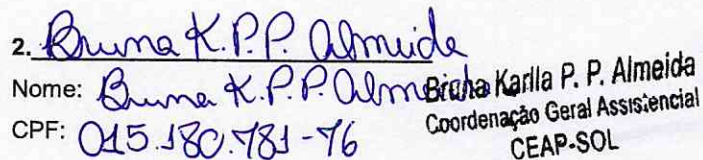 2. Bruna K. P. P. Almeida
Nome: Bruna K. P. P. Almeida
CPF: 015.180.781-76
Bruna Karlla P. P. Almeida
Coordenação Geral Assistencial
CEAP-SOL